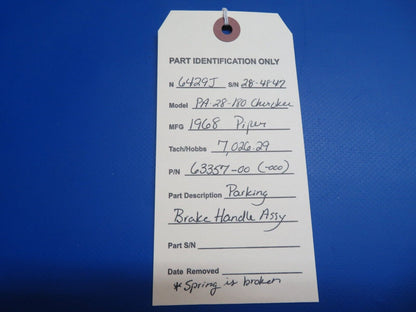 PART IDENTIFICATION ONLY
N 6429J S/N 28-4847
Model PA-28-180 Cherokee
MFG 1968 Piper
Tach/Hobbs 7,026.29
P/N 63357-00 (-000)
Part Description Parking
Brake Handle Assy
Part S/N
Date Removed
* Spring is broken